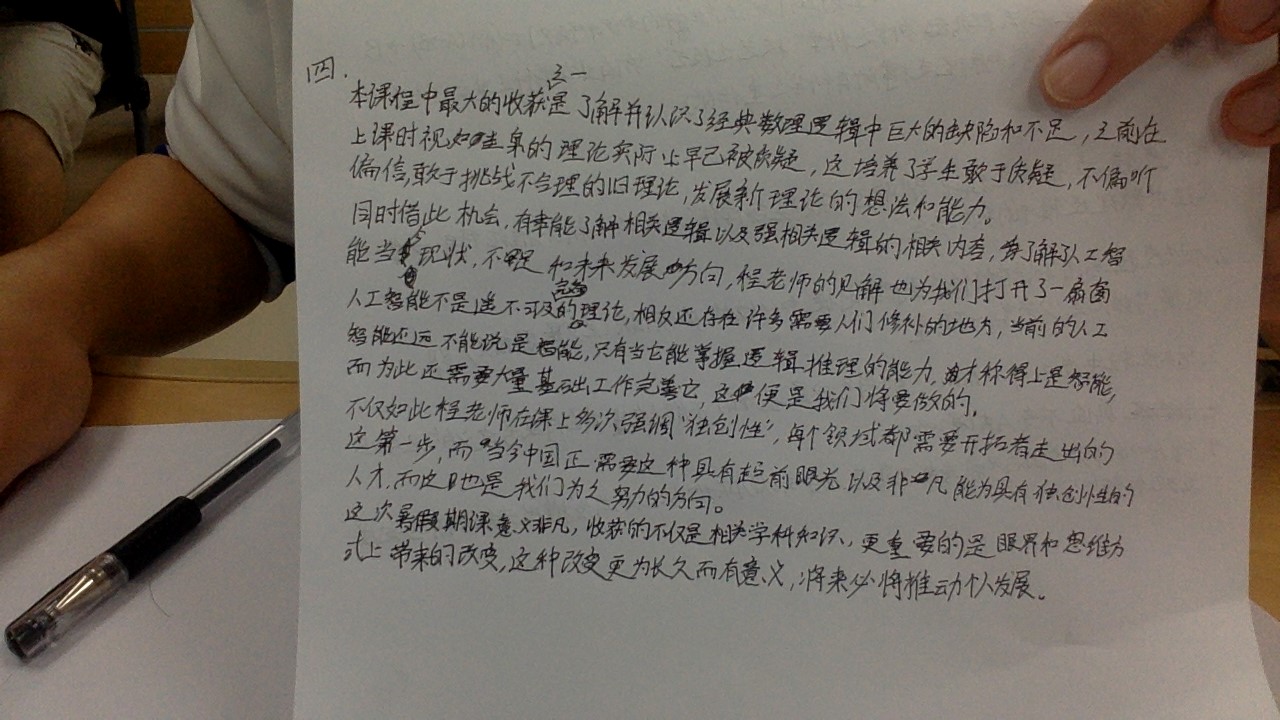 四.
本课程中最大的收获之一是了解并认识了经典数理逻辑中巨大的缺陷和不足,之前在
上课时视如圭臬的理论实际上早已被质疑,这培养了学生敢于质疑,不偏听
偏信,敢于挑战不合理的旧理论,发展新理论的想法和能力。
同时借此机会,有幸能了解相关逻辑以及强相关逻辑的相关内容,了解了人工智
能当 现状,不足和未来发展方向,程老师的见解也为我们打开了一扇窗
人工智能不是遥不可及的完备理论,相反还存在许多需要人们修补的地方,当前的人工
智能还远不能说是智能,只有当它能掌握逻辑推理的能力,才称得上是智能,
而为此还需要大量基础工作完善它,这便是我们将要做的。
不仅如此程老师在课上多次强调“独创性”,每个领域都需要开拓者走出的
这第一步,而当今中国正需要这种具有超前眼光以及非凡能力具有独创性的
人才,而这也是我们为之努力的方向。
这次暑假期课意义非凡,收获的不仅是相关学科知识,更重要的是眼界和思维方
式上带来的改变,这种改变更为长久而有意义,将来必将推动个人发展。